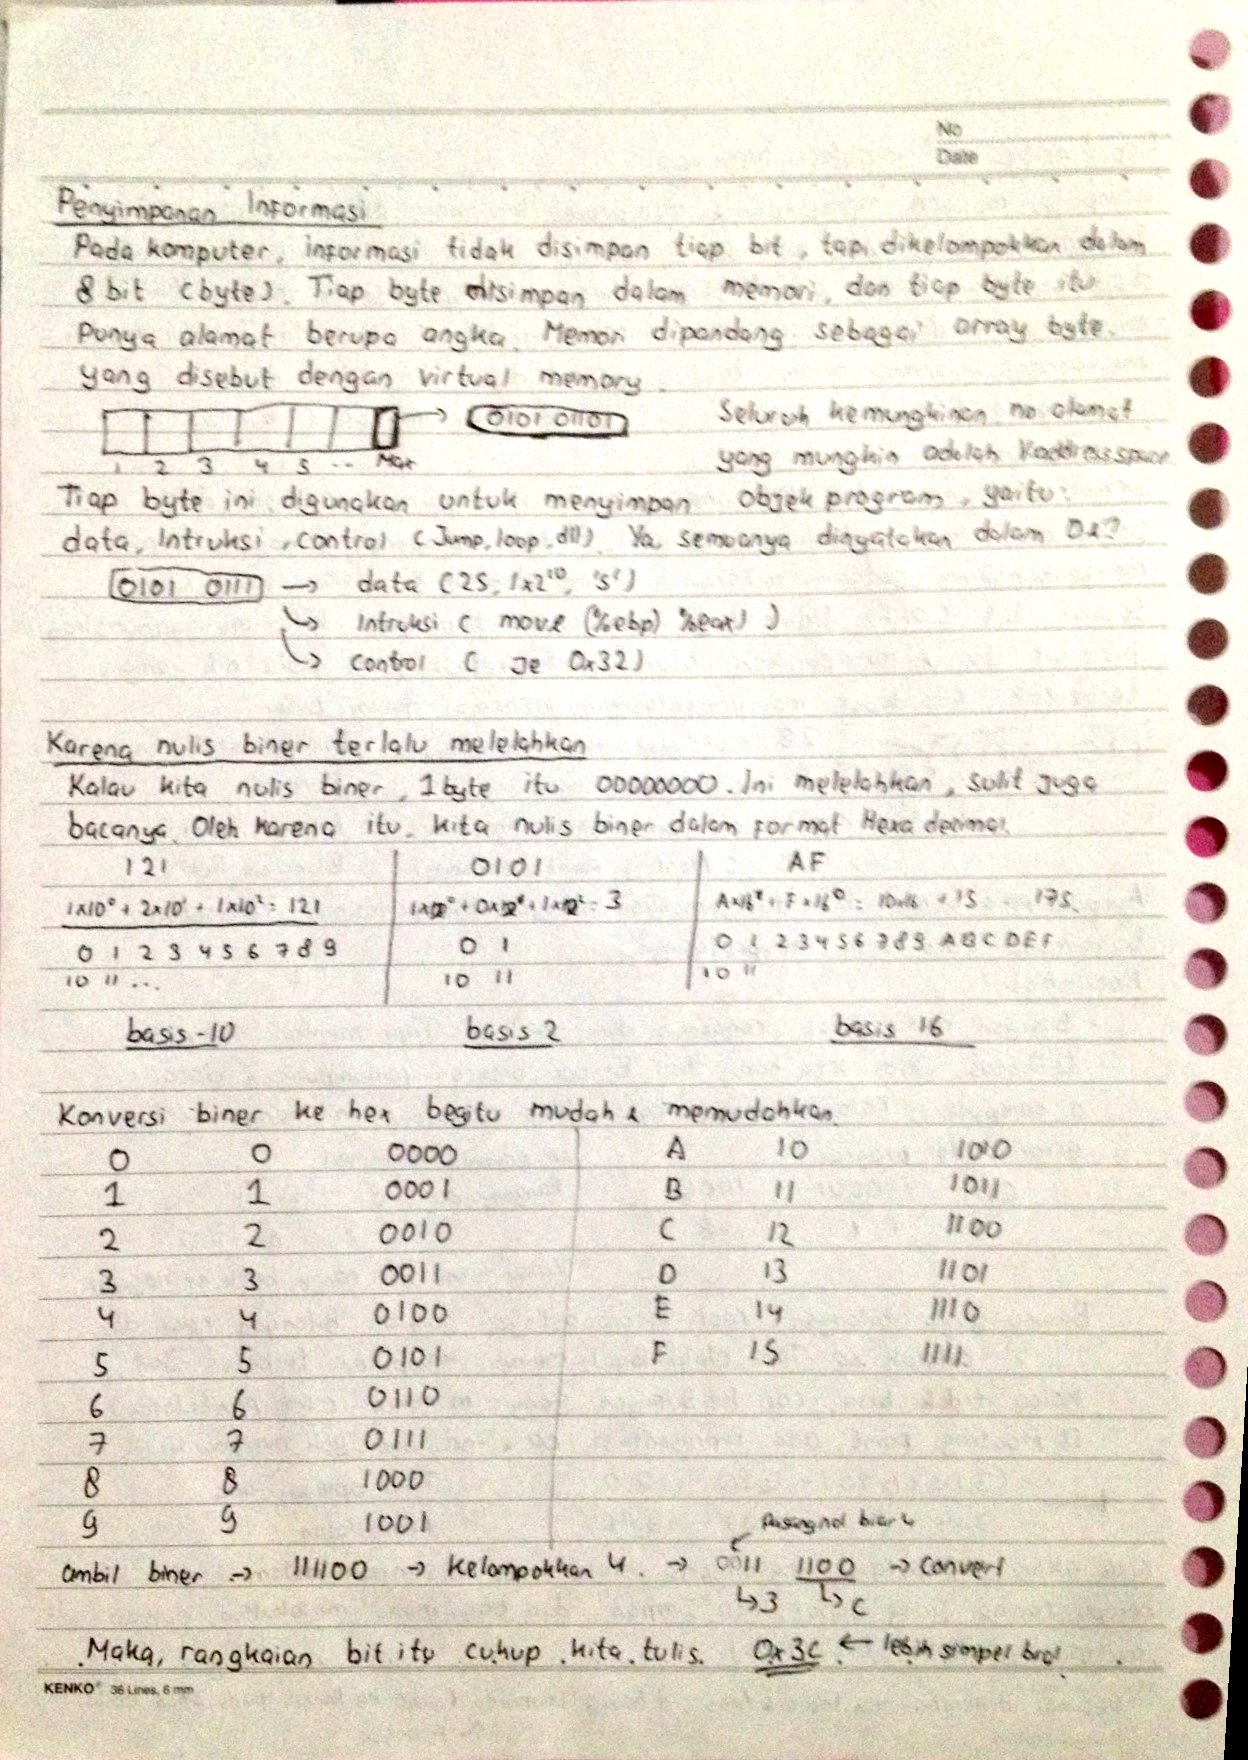 No
Date
Penyimpanan Informasi
Pada komputer, informasi tidak disimpan tiap bit, tapi dikelompokkan dalam
8 bit (byte). Tiap byte disimpan dalam memori, dan tiap byte itu
Punya alamat berupa angka. Memori dipandang sebagai array byte.
yang disebut dengan virtual memory.
0101 01101
Seluruh kemungkinan no alamat
1 2 3 4 5 .. Max
yang mungkin adalah
Tiap byte ini digunakan untuk menyimpan objek program, yaitu:
data, Intruksi, control (Jump, loop, dll) Ya, semuanya dinyatakan dalam
0101 0111 → data (25, 1x2¹⁰, 's')
↳ Intruksi ( move (%ebp) %eax) )
↳ control ( Je 0x32)
Karena nulis biner terlalu melelahkan
Kalau kita nulis biner, 1 byte itu 00000000. Ini melelahkan, sulit juga
bacanya. Oleh karena itu, kita nulis biner dalam format Hexa decimal.
121 0101 AF
1x10⁰ + 2x10¹ + 1x10² = 121
0 1 2 3 4 5 6 7 8 9 0 1 0 1 2 3 4 5 6 7 8 9 A B C D E F
10 11 ... 10 11 10 11
basis-10 basis 2 basis 16
Konversi biner ke hex begitu mudah & memudahkan.
0 0 0000 A 10 1010
1 1 0001 B 11 1011
2 2 0010 C 12 1100
3 3 0011 D 13 1101
4 4 0100 E 14 1110
5 5 0101 F 15 1111
6 6 0110
7 7 0111
8 8 1000
9 9 1001
Pasang nol biar 4
ambil biner → 111100 → Kelompokkan 4. → 0011 1100 → Convert
↳ 3 ↳ C
Maka, rangkaian bit itu cukup kita tulis. 0x3C ← lebih simpel bro!
KENKO® 36 Lines, 6 mm